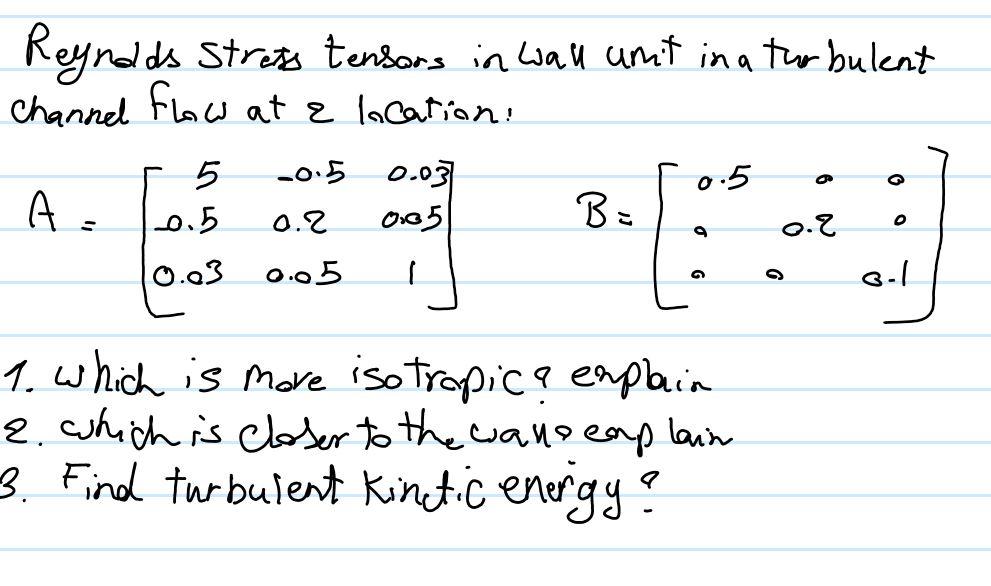 Reynolds Stress tensors in wall unit in a turbulent
channel flow at 2 location:
A = [ 5 -0.5 0.03
-0.5 0.2 0.05
0.03 0.05 1 ]
B = [ 0.5 0 0
0 0.2 0
0 0 0.1 ]
1. which is more isotropic? explain
2. which is closer to the wall? explain
3. Find turbulent kinetic energy?